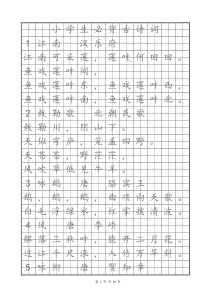 小学生必背古诗词
1江南 汉乐府
江南可采莲，莲叶何田田。
鱼戏莲叶间，
鱼戏莲叶东，鱼戏莲叶西，
鱼戏莲叶南，鱼戏莲叶北。
2敕勒歌 北朝民歌
敕勒川，阴山下。
天似穹庐，笼盖四野。
天苍苍，野茫茫，
风吹草低见牛羊。
3咏鹅 唐 骆宾王
鹅，鹅，鹅，曲项向天歌。
白毛浮绿水，红掌拨清波。
4风 唐 李峤
解落三秋叶，能开二月花。
过江千尺浪，入竹万竿斜。
5咏柳 唐 贺知章